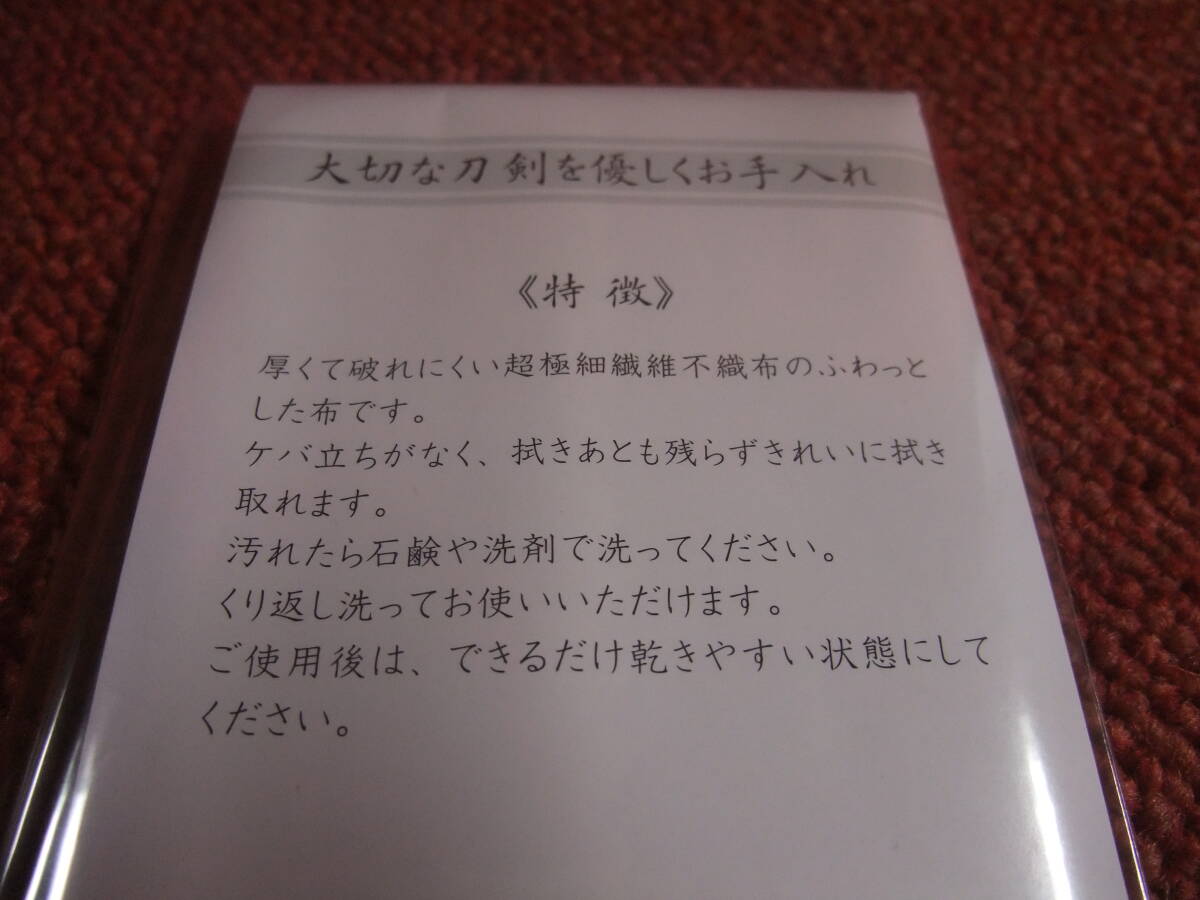 大切な刀剣を優しくお手入れ
《特 徴》
厚くて破れにくい超極細繊維不織布のふわっと
した布です。
ケバ立ちがなく、拭きあとも残らずきれいに拭き
取れます。
汚れたら石鹸や洗剤で洗ってください。
くり返し洗ってお使いいただけます。
ご使用後は、できるだけ乾きやすい状態にして
ください。